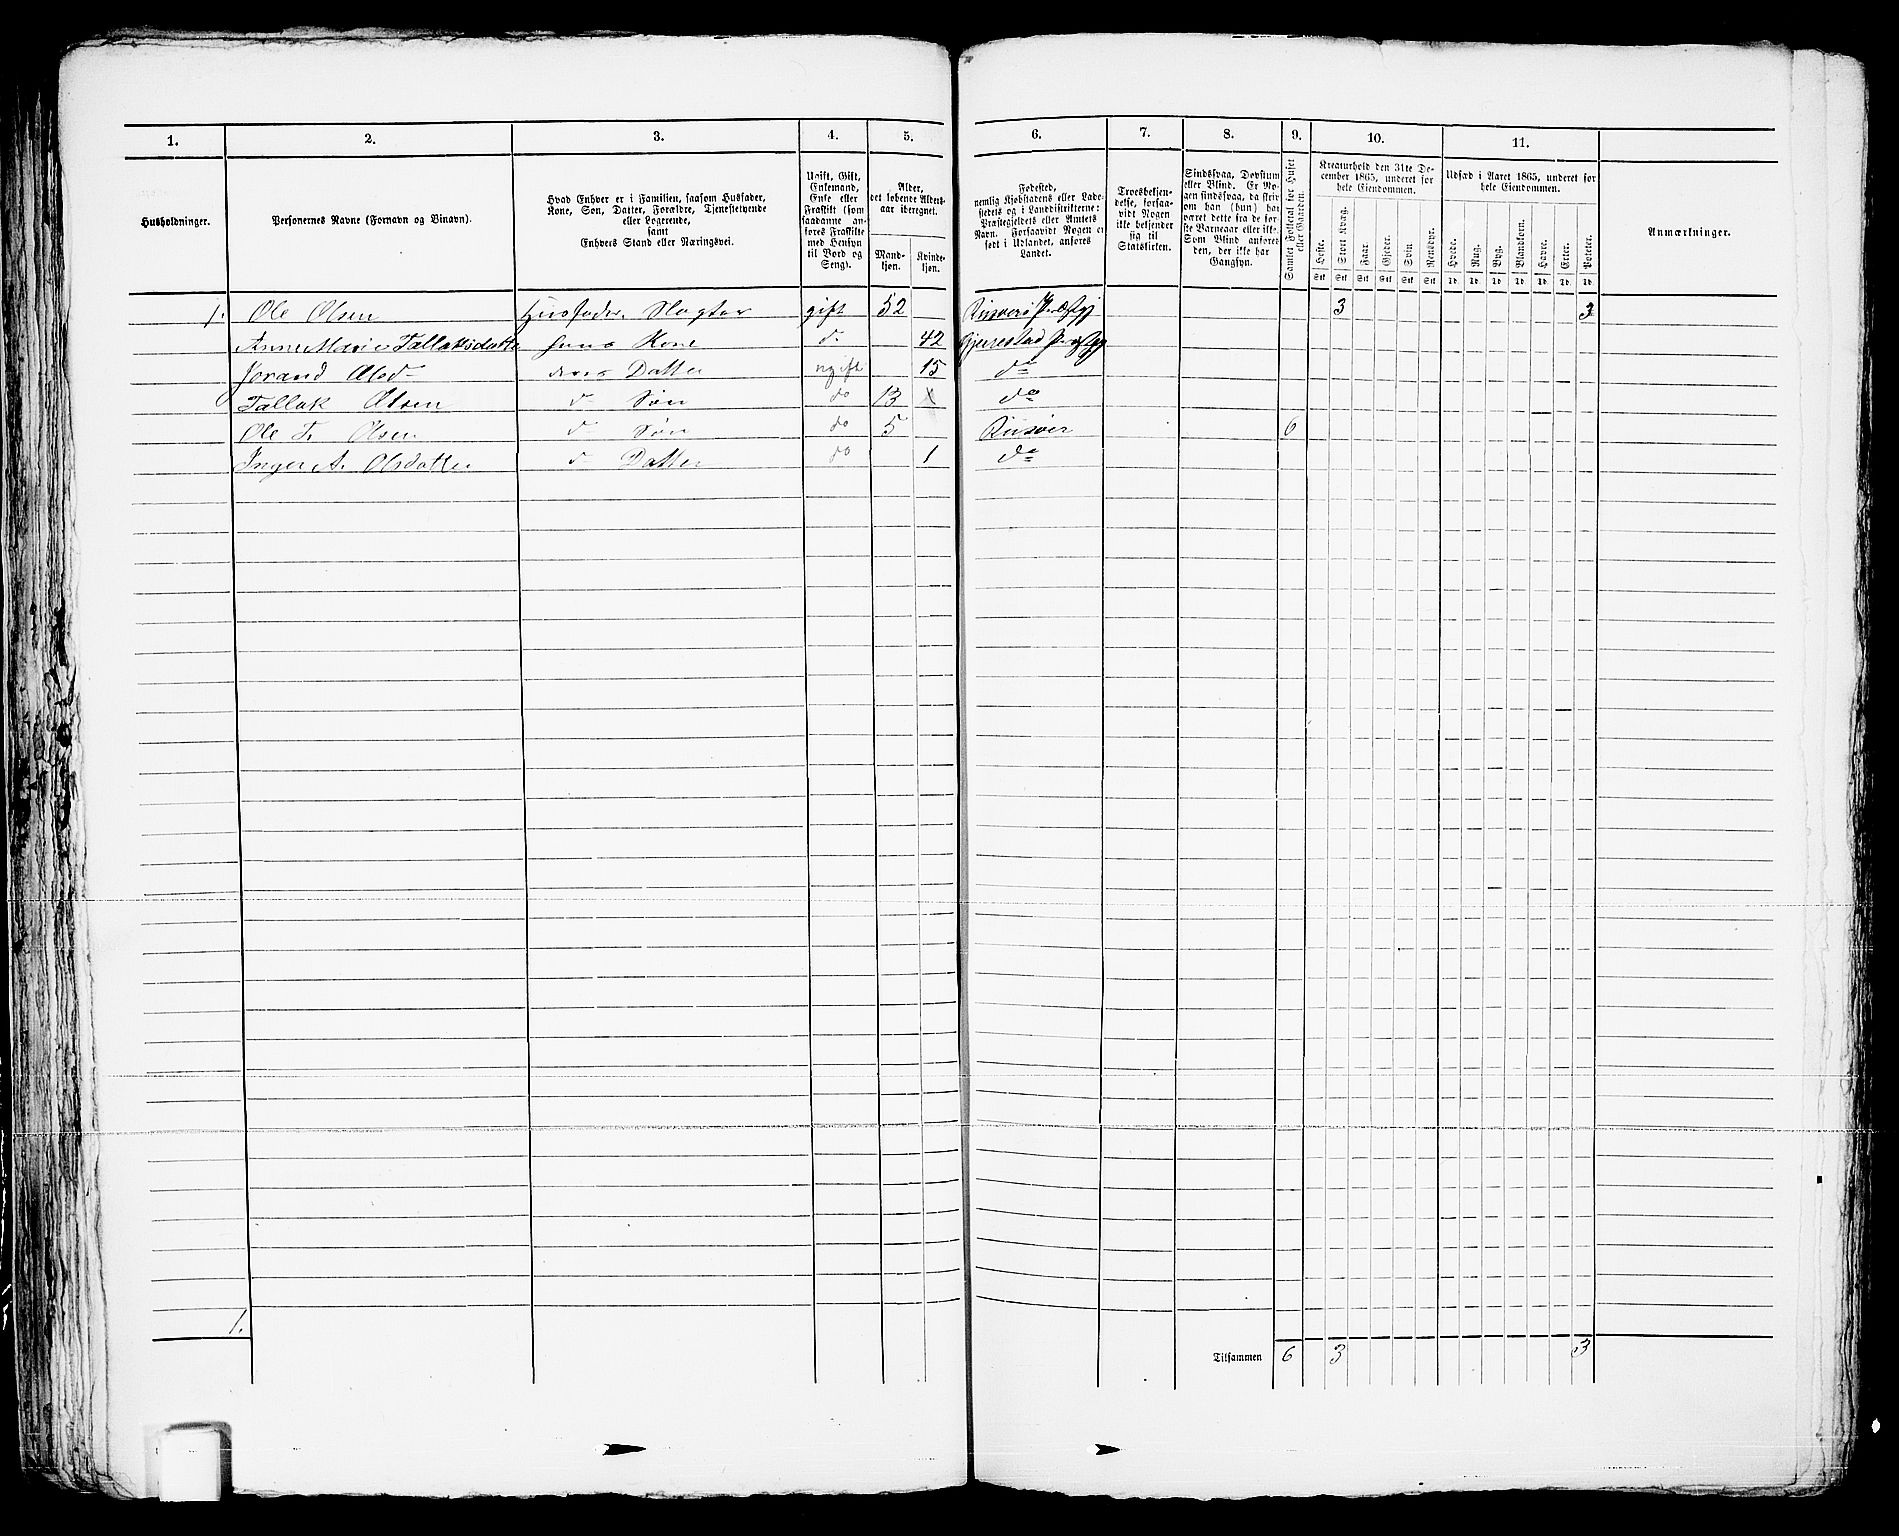 1. 2. 3. 4. 5. 6. 7. 8. 9. 10. 11.
Husholdninger.
Personernes Navne (Fornavn og Binavn).
Hvad Enhver er i Familien, saasom Husfader,
Kone, Søn, Datter, Forældre, Tjenestetyende
eller Logerende,
samt
Enhvers Stand eller Næringsvei.
Ugift, Gift,
Enkemand,
Enke eller
Fraskilt (som
saadanne an-
føres Fraskilte
med Hensyn
til Bord og
Seng).
Alder,
det løbende Alders-
aar iberegnet.
Mand-
kjøn.
Kvinde-
kjøn.
Fødested,
nemlig Kjøbstadens eller Lade-
stedets og i Landdistrikterne:
Præstegjeldets eller Amtets
Navn. Forsaavidt Nogen er
født i Udlandet, anføres
Landet.
Troesbekjen-
delse, forsaa-
vidt Nogen
ikke bekjender
sig til
Statskirken.
Sindssvag, Døvstum
eller Blind. Er No-
gen sindssvag, da skrives
om han (hun) har
været dette fra de før-
ste Barneaar eller ikke.
Som Blind anføres
den, der ikke har
Gangsyn.
Samlet Folketal for Huset
eller Gaarden.
Kreaturhold den 31te De-
cember 1865, underet for
hele Eiendommen.
Heste. Stort Kvæg. Faar. Gjeder. Svin. Rensdyr.
Stk Stk Stk Stk Stk Stk
Udsæd i Aaret 1865, underet for
hele Eiendommen.
Hvede. Rug. Byg. Blandkorn. Havre. Erter. Poteter.
Td. Td. Td. Td. Td. Td. Td.
Anmærkninger.
1. Ole Olsen Husfader Slagter gift 52 3 3
Anne Marie Tallaksdatter hans Kone do 42
Olsd deres Datter ugift 15 do
Tallak Olsen do Søn do 13 do
Ole T. Olsen do Søn do 5 Risøer 6
Inger A. Olsdatter do Datter do 1 do
1.
Tilsammen 6 3 3